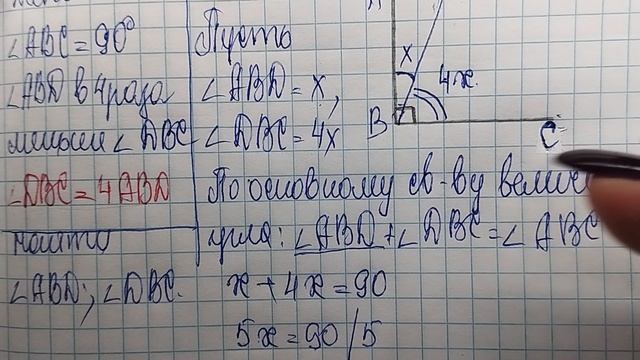 ∠ABC = 90°
∠ABD в 4 раза
меньше ∠DBC
∠DBC = 4 ABD
найти
∠ABD; ∠DBC.
Пусть
∠ABD = x,
∠DBC = 4x
По основному св-ву велич
угла: ∠ABD + ∠DBC = ∠ABC
x + 4x = 90
5x = 90 / 5
x
4x
B
C